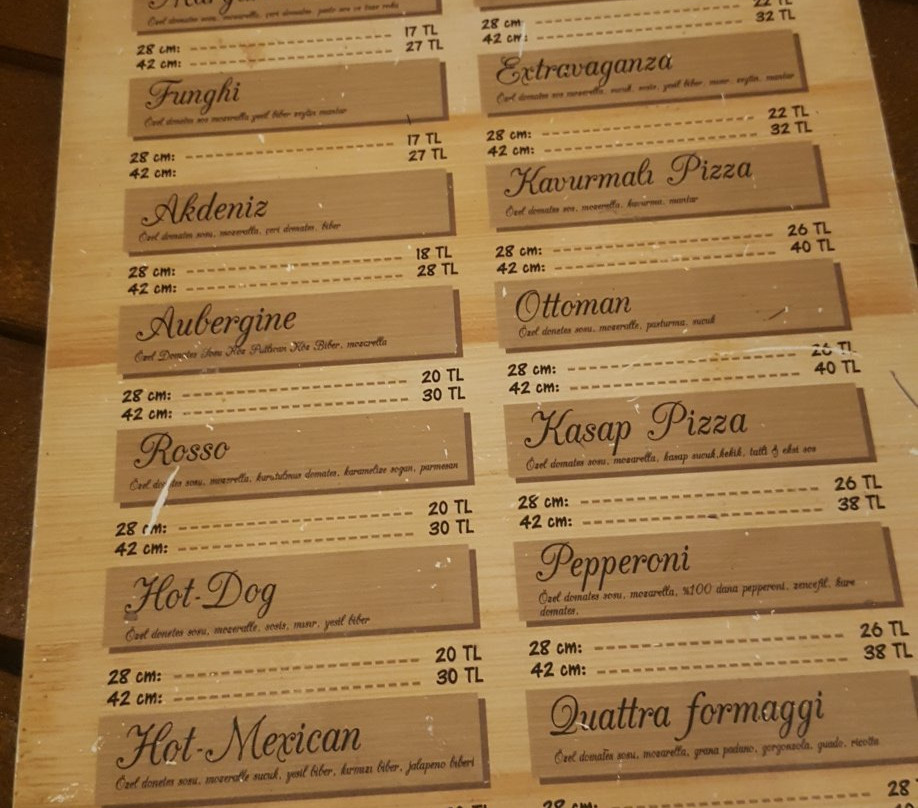 28 cm: 17 TL
42 cm: 27 TL
Funghi
Özel domates sos mozerella yeşil biber zeytin mantar
28 cm: 17 TL
42 cm: 27 TL
Akdeniz
Özel domates sosu, mozerella, çeri domates, biber
28 cm: 18 TL
42 cm: 28 TL
Aubergine
Özel Domates Sosu Köz Patlıcan Köz Biber, mozarella
28 cm: 20 TL
42 cm: 30 TL
Rosso
Özel domates sosu, mozerella, kurutulmus domates, karamelize sogan, parmesan
28 cm: 20 TL
42 cm: 30 TL
Hot-Dog
Özel donates sosu, mozeralle, sosis, mısır, yesil biber
28 cm: 20 TL
42 cm: 30 TL
Hot-Mexican
Özel donetes sosu, mozeralle sucuk, yesil biber, kırmızı biber, jalapeno biberi
28 cm: 22 TL
42 cm: 32 TL
Extravaganza
Özel domates sos mozarella, sucuk, sosis, yesil biber, mısır, zeytin, mantar
28 cm: 22 TL
42 cm: 32 TL
Kavurmalı Pizza
Özel domates sos, mozarella, kavurma, mantar
28 cm: 26 TL
42 cm: 40 TL
Ottoman
Özel donates sosu, mozeralle, pasturma, sucuk
28 cm: 26 TL
42 cm: 40 TL
Kasap Pizza
Özel domates sosu, mozarella, kasap sucuk,kekik, tatli & eksi sos
28 cm: 26 TL
42 cm: 38 TL
Pepperoni
Özel domates sosu, mozarella, %100 dana pepperoni, zencefil, kure
domates,
28 cm: 26 TL
42 cm: 38 TL
Quattra formaggi
Özel domates sosu, mozarella, grana padano, gorgonzola, guado, ricotta
28 cm: 28